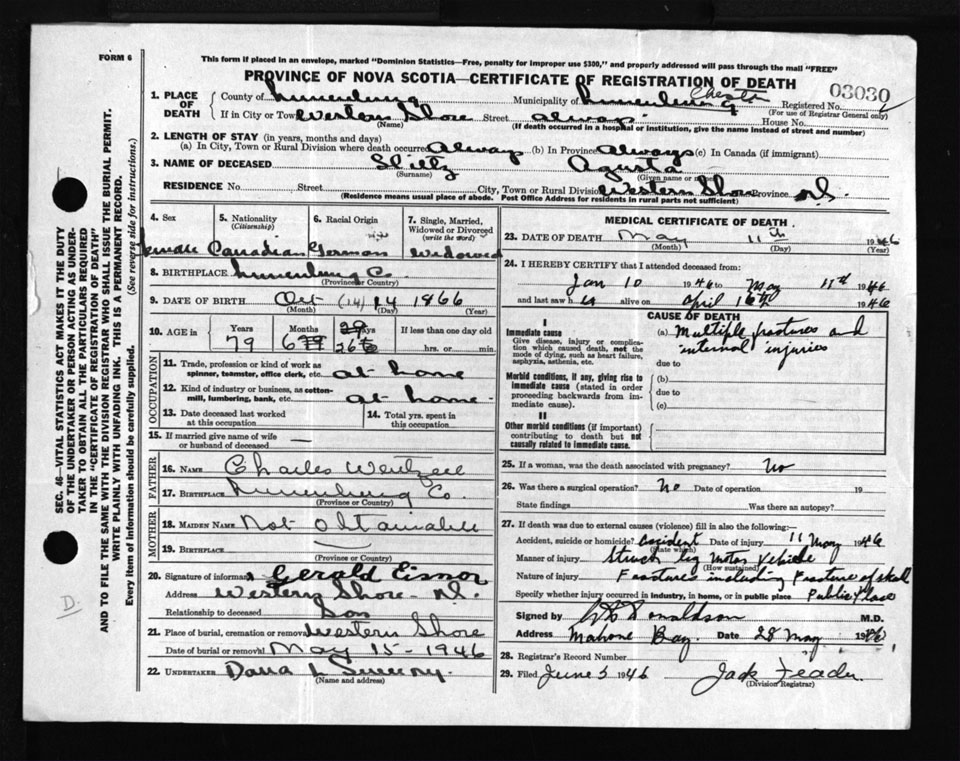 FORM 6
This form if placed in an envelope, marked "Dominion Statistics—Free, penalty for improper use $300," and properly addressed will pass through the mail "FREE"
PROVINCE OF NOVA SCOTIA—CERTIFICATE OF REGISTRATION OF DEATH
03030
1. PLACE OF DEATH
County of Lunenburg Municipality of Lunenburg Chester Registered No.
(For use of Registrar General only)
If in City or Town Western Shore Street always House No.
(Name) (If death occurred in a hospital or institution, give the name instead of street and number)
2. LENGTH OF STAY (in years, months and days)
(a) In City, Town or Rural Division where death occurred Always (b) In Province Always (c) In Canada (if immigrant)
3. NAME OF DECEASED Agusta
(Surname) (Given name or names)
RESIDENCE No. Street City, Town or Rural Division Western Shore Province N.S.
(Residence means usual place of abode. Post Office Address for residents in rural parts not sufficient)
4. Sex 5. Nationality (Citizenship) 6. Racial Origin 7. Single, Married, Widowed or Divorced (write the word)
Female Canadian German Widowed
8. BIRTHPLACE Lunenburg Co.
(Province or Country)
9. DATE OF BIRTH Oct (14) 14 1866
(Month) (Day) (Year)
10. AGE in Years Months Days If less than one day old
79 6 26 hrs. or min.
OCCUPATION
11. Trade, profession or kind of work as spinner, teamster, office clerk, etc. at home
12. Kind of industry or business, as cotton-mill, lumbering, bank, etc. at home
13. Date deceased last worked at this occupation 14. Total yrs. spent in this occupation
15. If married give name of wife or husband of deceased —
FATHER
16. NAME Charles Wentzell
17. BIRTHPLACE Lunenburg Co.
(Province or Country)
MOTHER
18. MAIDEN NAME Not obtainable
19. BIRTHPLACE —
(Province or Country)
20. Signature of informant Gerald Eisnor
Address Western Shore N.S.
Relationship to deceased Son
21. Place of burial, cremation or removal Western Shore
Date of burial or removal May 15 - 1946
22. UNDERTAKER Dana L Sweeny.
(Name and address)
MEDICAL CERTIFICATE OF DEATH
23. DATE OF DEATH May 11th 1946
(Month) (Day) (Year)
24. I HEREBY CERTIFY that I attended deceased from:
Jan 10 1946 to May 11th 1946
and last saw her alive on April 16th 1946
CAUSE OF DEATH
I
Immediate cause
Give disease, injury or complication which caused death, not the mode of dying, such as heart failure, asphyxia, asthenia, etc.
(a) Multiple fractures and
internal injuries
due to
Morbid conditions, if any, giving rise to immediate cause (stated in order proceeding backwards from immediate cause).
(b)
due to
(c)
II
Other morbid conditions (if important) contributing to death but not causally related to immediate cause.
25. If a woman, was the death associated with pregnancy? No
26. Was there a surgical operation? No Date of operation 19
State findings Was there an autopsy?
27. If death was due to external causes (violence) fill in also the following:—
Accident, suicide or homicide? accident Date of injury 11 May 1946
(State which)
Manner of injury Struck by Motor Vehicle
(How sustained)
Nature of injury Fractures including Fracture of skull
Specify whether injury occurred in industry, in home, or in public place Public Place
Signed by Donaldson M.D.
Address Mahone Bay. Date 28 May 1946
28. Registrar's Record Number
29. Filed June 5 1946 Jack
(Division Registrar)
SEC. 46—VITAL STATISTICS ACT MAKES IT THE DUTY
OF THE UNDERTAKER OR PERSON ACTING AS UNDERTAKER TO OBTAIN ALL THE PARTICULARS REQUIRED
IN THE "CERTIFICATE OF REGISTRATION OF DEATH"
AND TO FILE THE SAME WITH THE DIVISION REGISTRAR WHO SHALL ISSUE THE BURIAL PERMIT.
WRITE PLAINLY WITH UNFADING INK. THIS IS A PERMANENT RECORD.
Every item of information should be carefully supplied. (See reverse side for instructions.)
D.